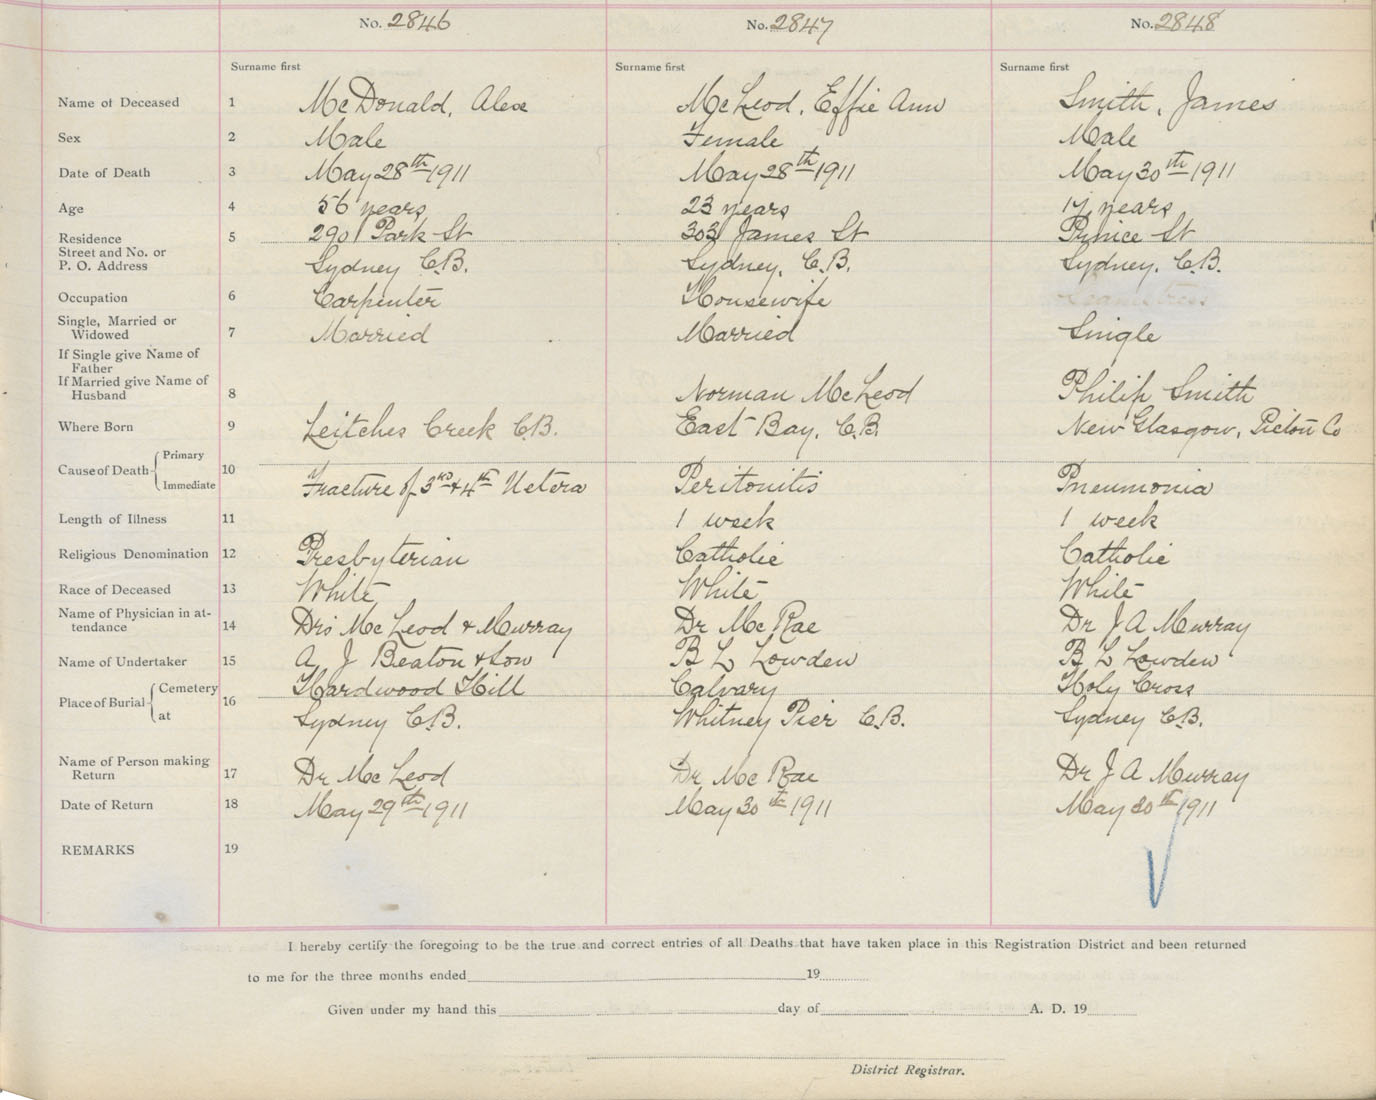 No. 2846 No. 2847 No. 2848
Surname first Surname first Surname first
Name of Deceased 1 McDonald, Alex McLeod, Effie Ann Smith, James
Sex 2 Male Female Male
Date of Death 3 May 28th 1911 May 28th 1911 May 30th 1911
Age 4 56 years 23 years 17 years
Residence 5 290 Park St 303 James St Prince St
Street and No. or
P. O. Address Sydney C.B. Sydney, C.B. Sydney, C.B.
Occupation 6 Carpenter Housewife
Single, Married or
Widowed 7 Married Married Single
If Single give Name of
Father
If Married give Name of
Husband 8 Norman McLeod Philip Smith
Where Born 9 Leitches Creek C.B. East Bay, C.B. New Glasgow, Pictou Co
Cause of Death Primary
10
Immediate Fracture of 3rd & 4th Peritonitis Pneumonia
Length of Illness 11 1 week 1 week
Religious Denomination 12 Presbyterian Catholic Catholic
Race of Deceased 13 White White White
Name of Physician in at-
tendance 14 Drs McLeod & Murray Dr McRae Dr J A Murray
Name of Undertaker 15 A J Beaton & Son B L Lowden B L Lowden
Place of Burial Cemetery 16 Hardwood Hill Calvary Holy Cross
at Sydney C.B. Whitney Pier C.B. Sydney C.B.
Name of Person making
Return 17 Dr McLeod Dr McRae Dr J A Murray
Date of Return 18 May 29th 1911 May 30th 1911 May 30th 1911
REMARKS 19
I hereby certify the foregoing to be the true and correct entries of all Deaths that have taken place in this Registration District and been returned
to me for the three months ended 19
Given under my hand this day of A. D. 19
District Registrar.